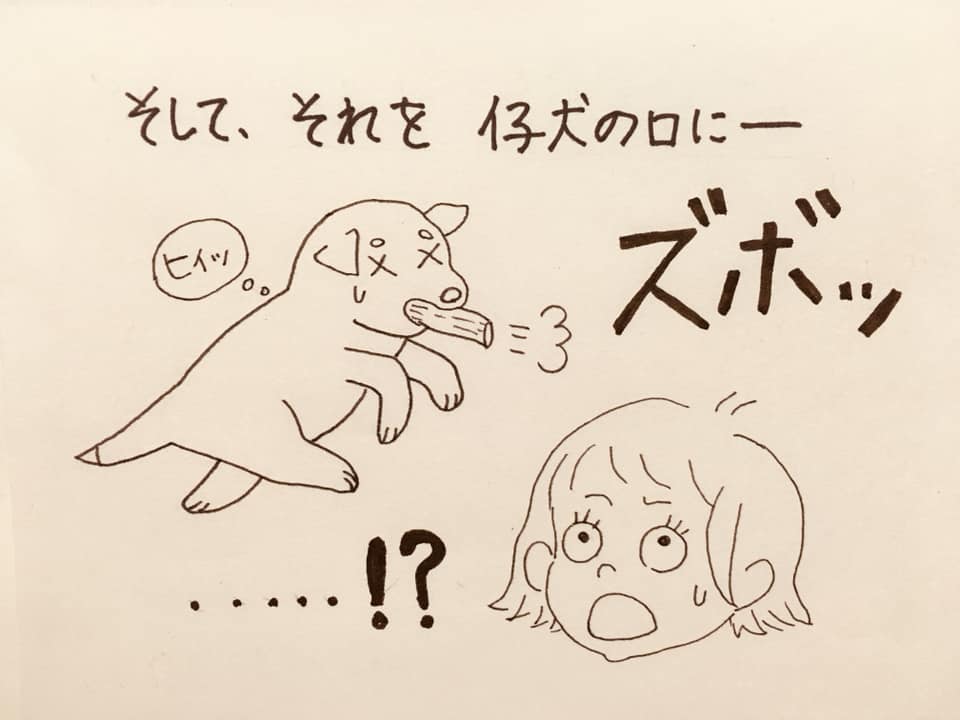 そして、それを 仔犬の口にー
ズボッ
ヒィッ
.....!?